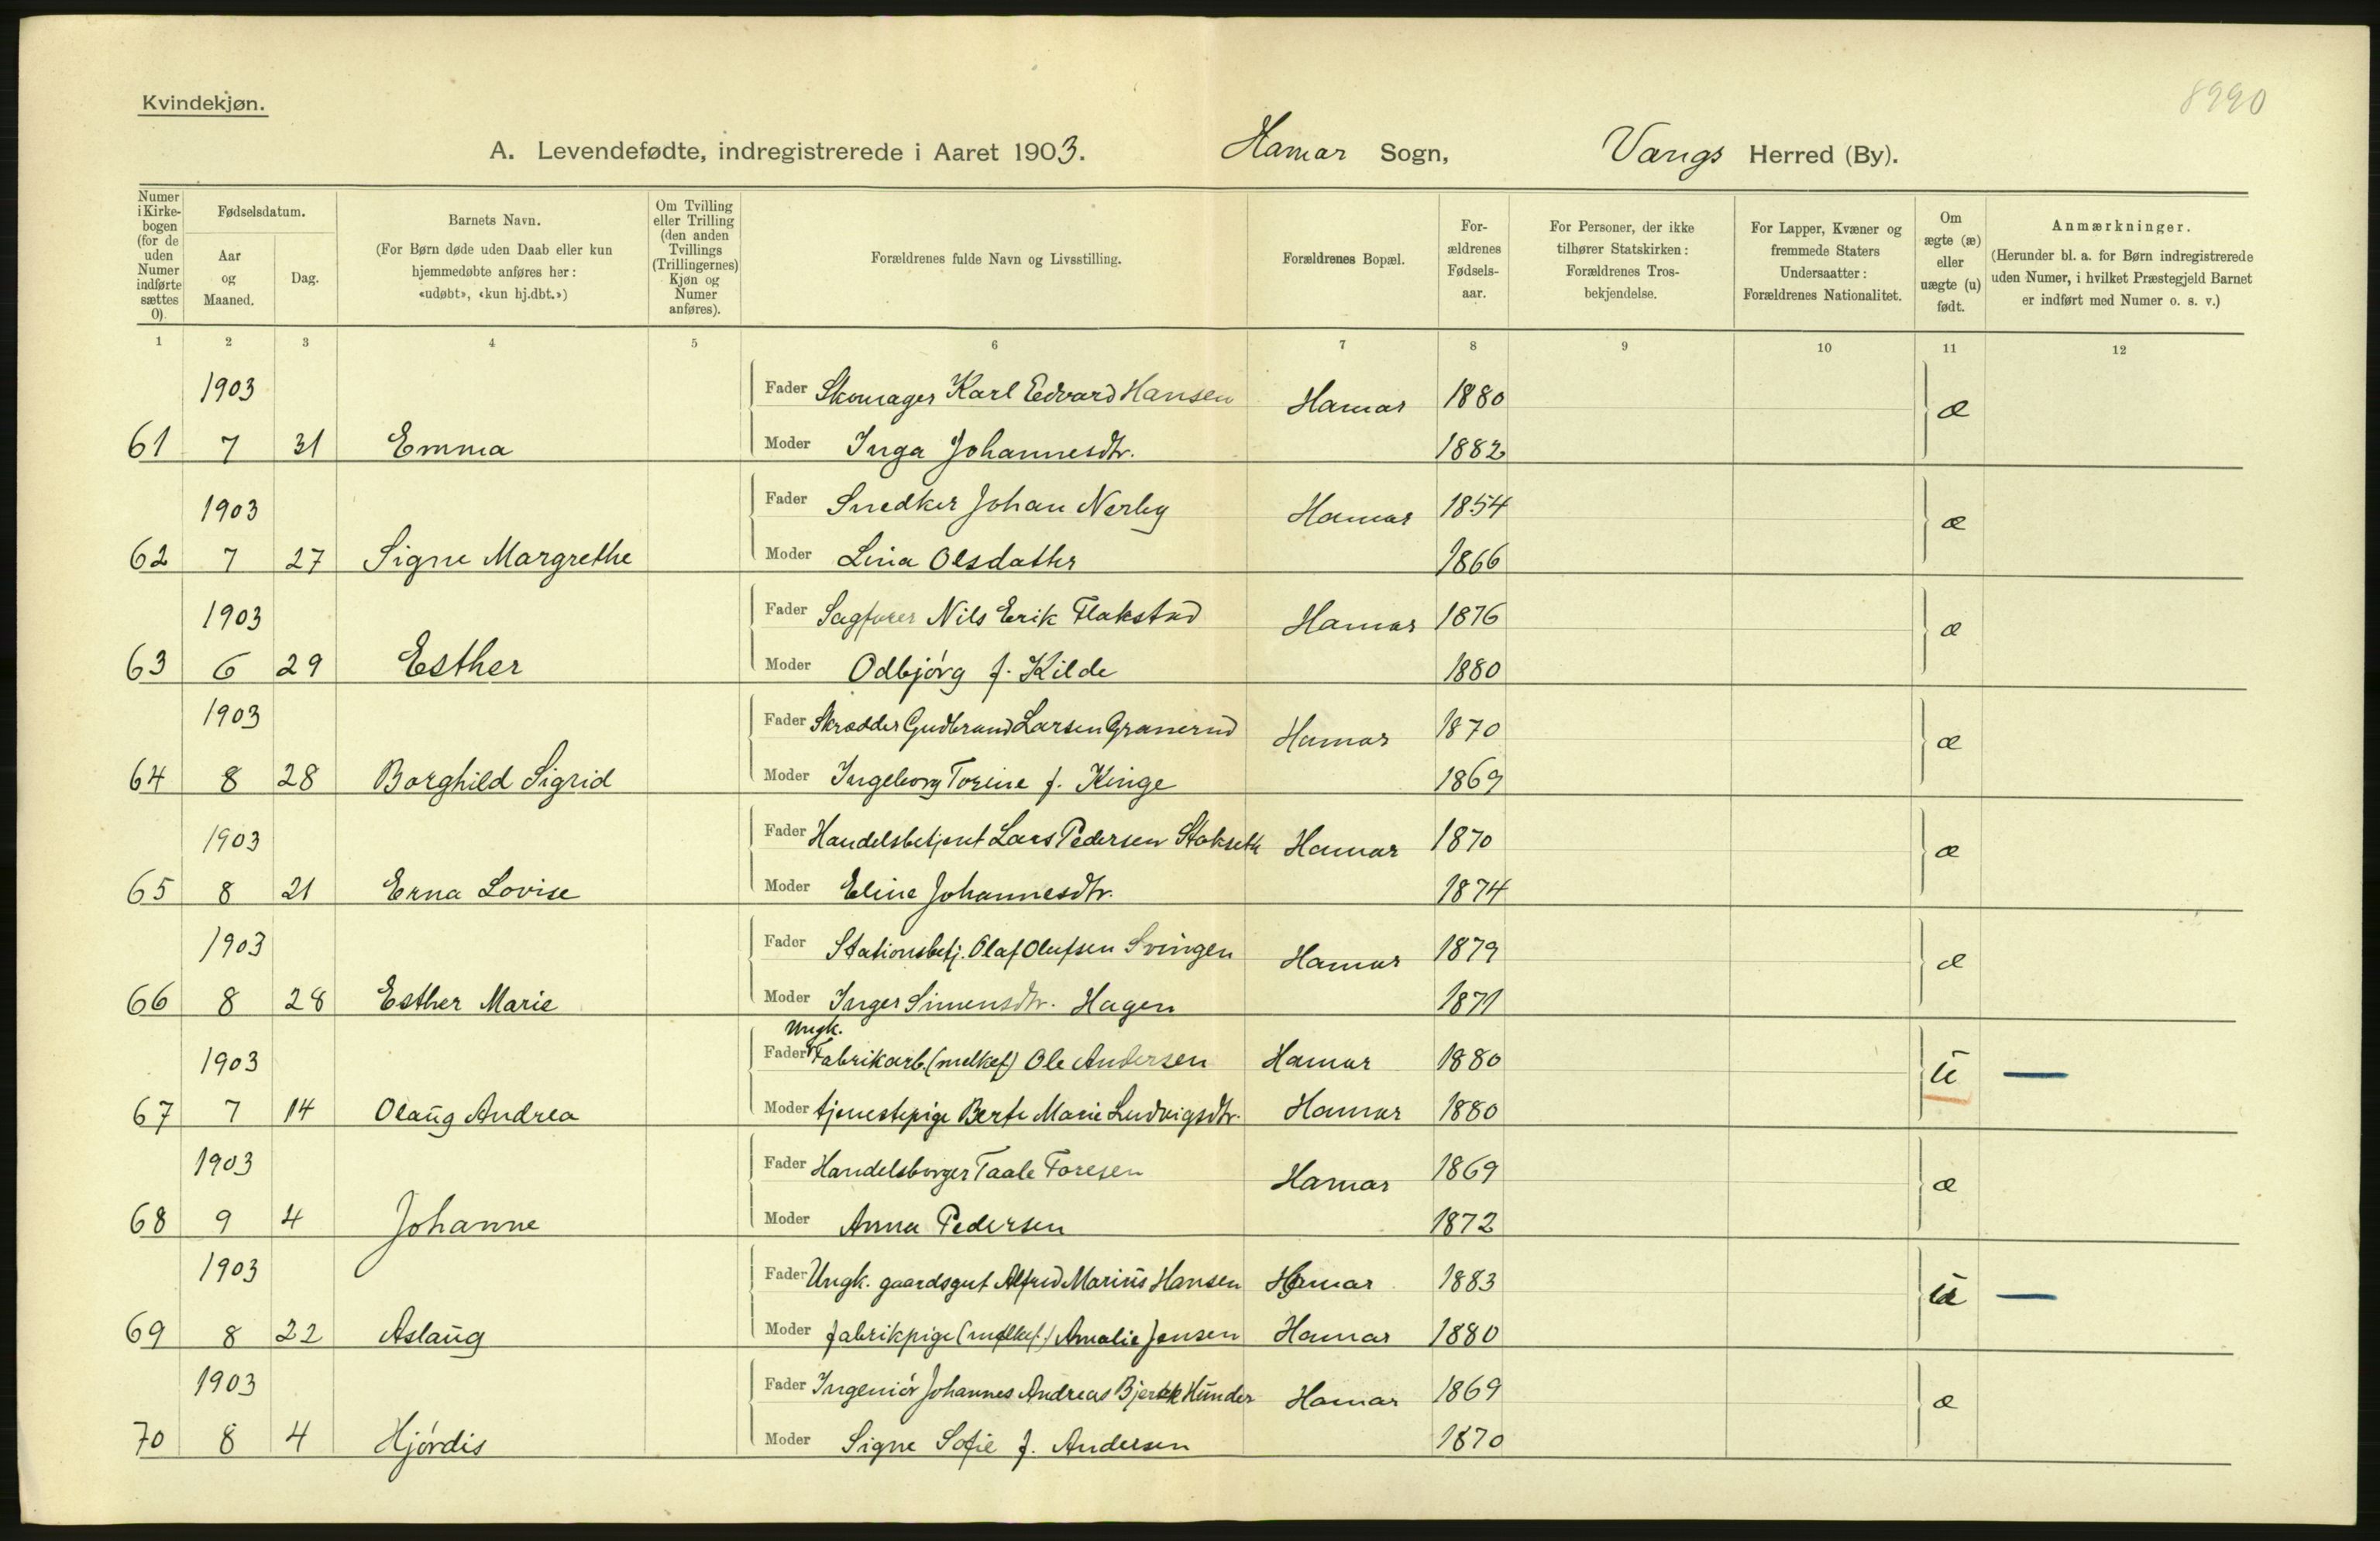 8990
Kvindekjøn.
A. Levendefødte, indregistrerede i Aaret 1903. Hamar Sogn, Vangs Herred (By).
Numer i Kirkebogen (for de uden Numer indførte sættes 0).
Fødselsdatum.
Aar og Maaned.
Dag.
Barnets Navn.
(For Børn døde uden Daab eller kun hjemmedøbte anføres her: «udøbt», «kun hj.dbt.»)
Om Tvilling eller Trilling (den anden Tvillings (Trillingernes) Kjøn og Numer anføres).
Forældrenes fulde Navn og Livsstilling.
Forældrenes Bopæl.
For-ældrenes Fødsels-aar.
For Personer, der ikke tilhører Statskirken: Forældrenes Tros-bekjendelse.
For Lapper, Kvæner og fremmede Staters Undersaatter: Forældrenes Nationalitet.
Om ægte (æ) eller uægte (u) født.
Anmærkninger.
(Herunder bl. a. for Børn indregistrerede uden Numer, i hvilket Præstegjeld Barnet er indført med Numer o. s. v.)
1 2 3 4 5 6 7 8 9 10 11 12
1903 Fader Skomager Karl Edvard Hansen Hamar 1880 æ
61 7 31 Emma Moder Inga Johannesdtr. 1882
1903 Fader Snedker Johan Nerby Hamar 1854 æ
62 7 27 Signe Margrethe Moder Lina Olsdatter 1866
1903 Fader Sagfører Nils Erik Flakstad Hamar 1876 æ
63 6 29 Esther Moder Odbjørg f. Kilde 1880
1903 Fader Skrædder Gudbrand Larsen Granerud Hamar 1870 æ
64 8 28 Borghild Sigrid Moder Ingeborg Torine f. Kinge 1869
1903 Fader Handelsbetjent Lars Pedersen Stokseth Hamar 1870 æ
65 8 21 Erna Lovise Moder Eline Johannesdtr. 1874
1903 Fader Stationsbetj. Olaf Olufsen Svingen Hamar 1879 æ
66 8 28 Esther Marie Moder Inger Simensdtr. Hagen 1871
Ungk.
1903 Fader Fabrikarb. (melkef) Ole Andersen Hamar 1880 u —
67 7 14 Olaug Andrea Moder tjenestepige Berte Marie Ludvigsdtr. Hamar 1880
1903 Fader Handelsborger Taale Toresen Hamar 1869 æ
68 9 4 Johanne Moder Anna Pedersen 1872
1903 Fader Ungk. gaardsgut Alfred Marius Hansen Hamar 1883 u —
69 8 22 Aslaug Moder fabrikpige (melkef.) Amalie Jensen Hamar 1880
1903 Fader Ingeniør Johannes Andreas Hunder Hamar 1869 æ
70 8 4 Hjørdis Moder Signe Sofie f. Andersen 1870